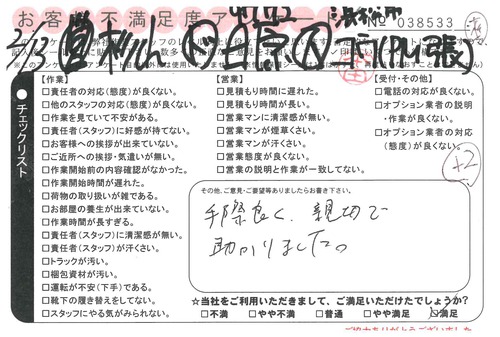 お客様不満足度アンケート
№ 038533
2/13
【作業】
□責任者の対応(態度)が良くない。
□他のスタッフの対応(態度)が良くない。
□作業を見ていて不安がある。
□責任者(スタッフ)に好感が持てない。
□お客様への挨拶が出来ていない。
□ご近所への挨拶・気遣いが無い。
□作業開始前の内容確認がなかった。
□作業開始時間が遅れた。
□荷物の取り扱いが雑である。
□お部屋の養生が出来ていない。
□作業時間が長すぎる。
□責任者(スタッフ)に清潔感が無い。
□責任者(スタッフ)が汗くさい。
□トラックが汚い。
□梱包資材が汚い。
□運転が不安(下手)である。
□靴下の履き替えをしてない。
□スタッフにやる気がみられない。
【営業】
□見積もり時間に遅れた。
□見積もり時間が長い。
□営業マンに清潔感が無い。
□営業マンが煙草くさい。
□営業マンが汗くさい。
□営業態度が良くない。
□営業の説明と作業が一致してない。
【受付・その他】
□電話の対応が良くない。
□オプション業者の説明
・作業が良くない。
□オプション業者の対応
(態度)が良くない。
+2
●チェックリスト
その他、ご意見・ご要望等ありましたらお書き下さい。
手際良く、親切で
助かりました。
☆当社をご利用いただきまして、ご満足いただけたでしょうか?
□不満 □やや不満 □普通 □やや満足 □満足
ご協力ありがとうございました